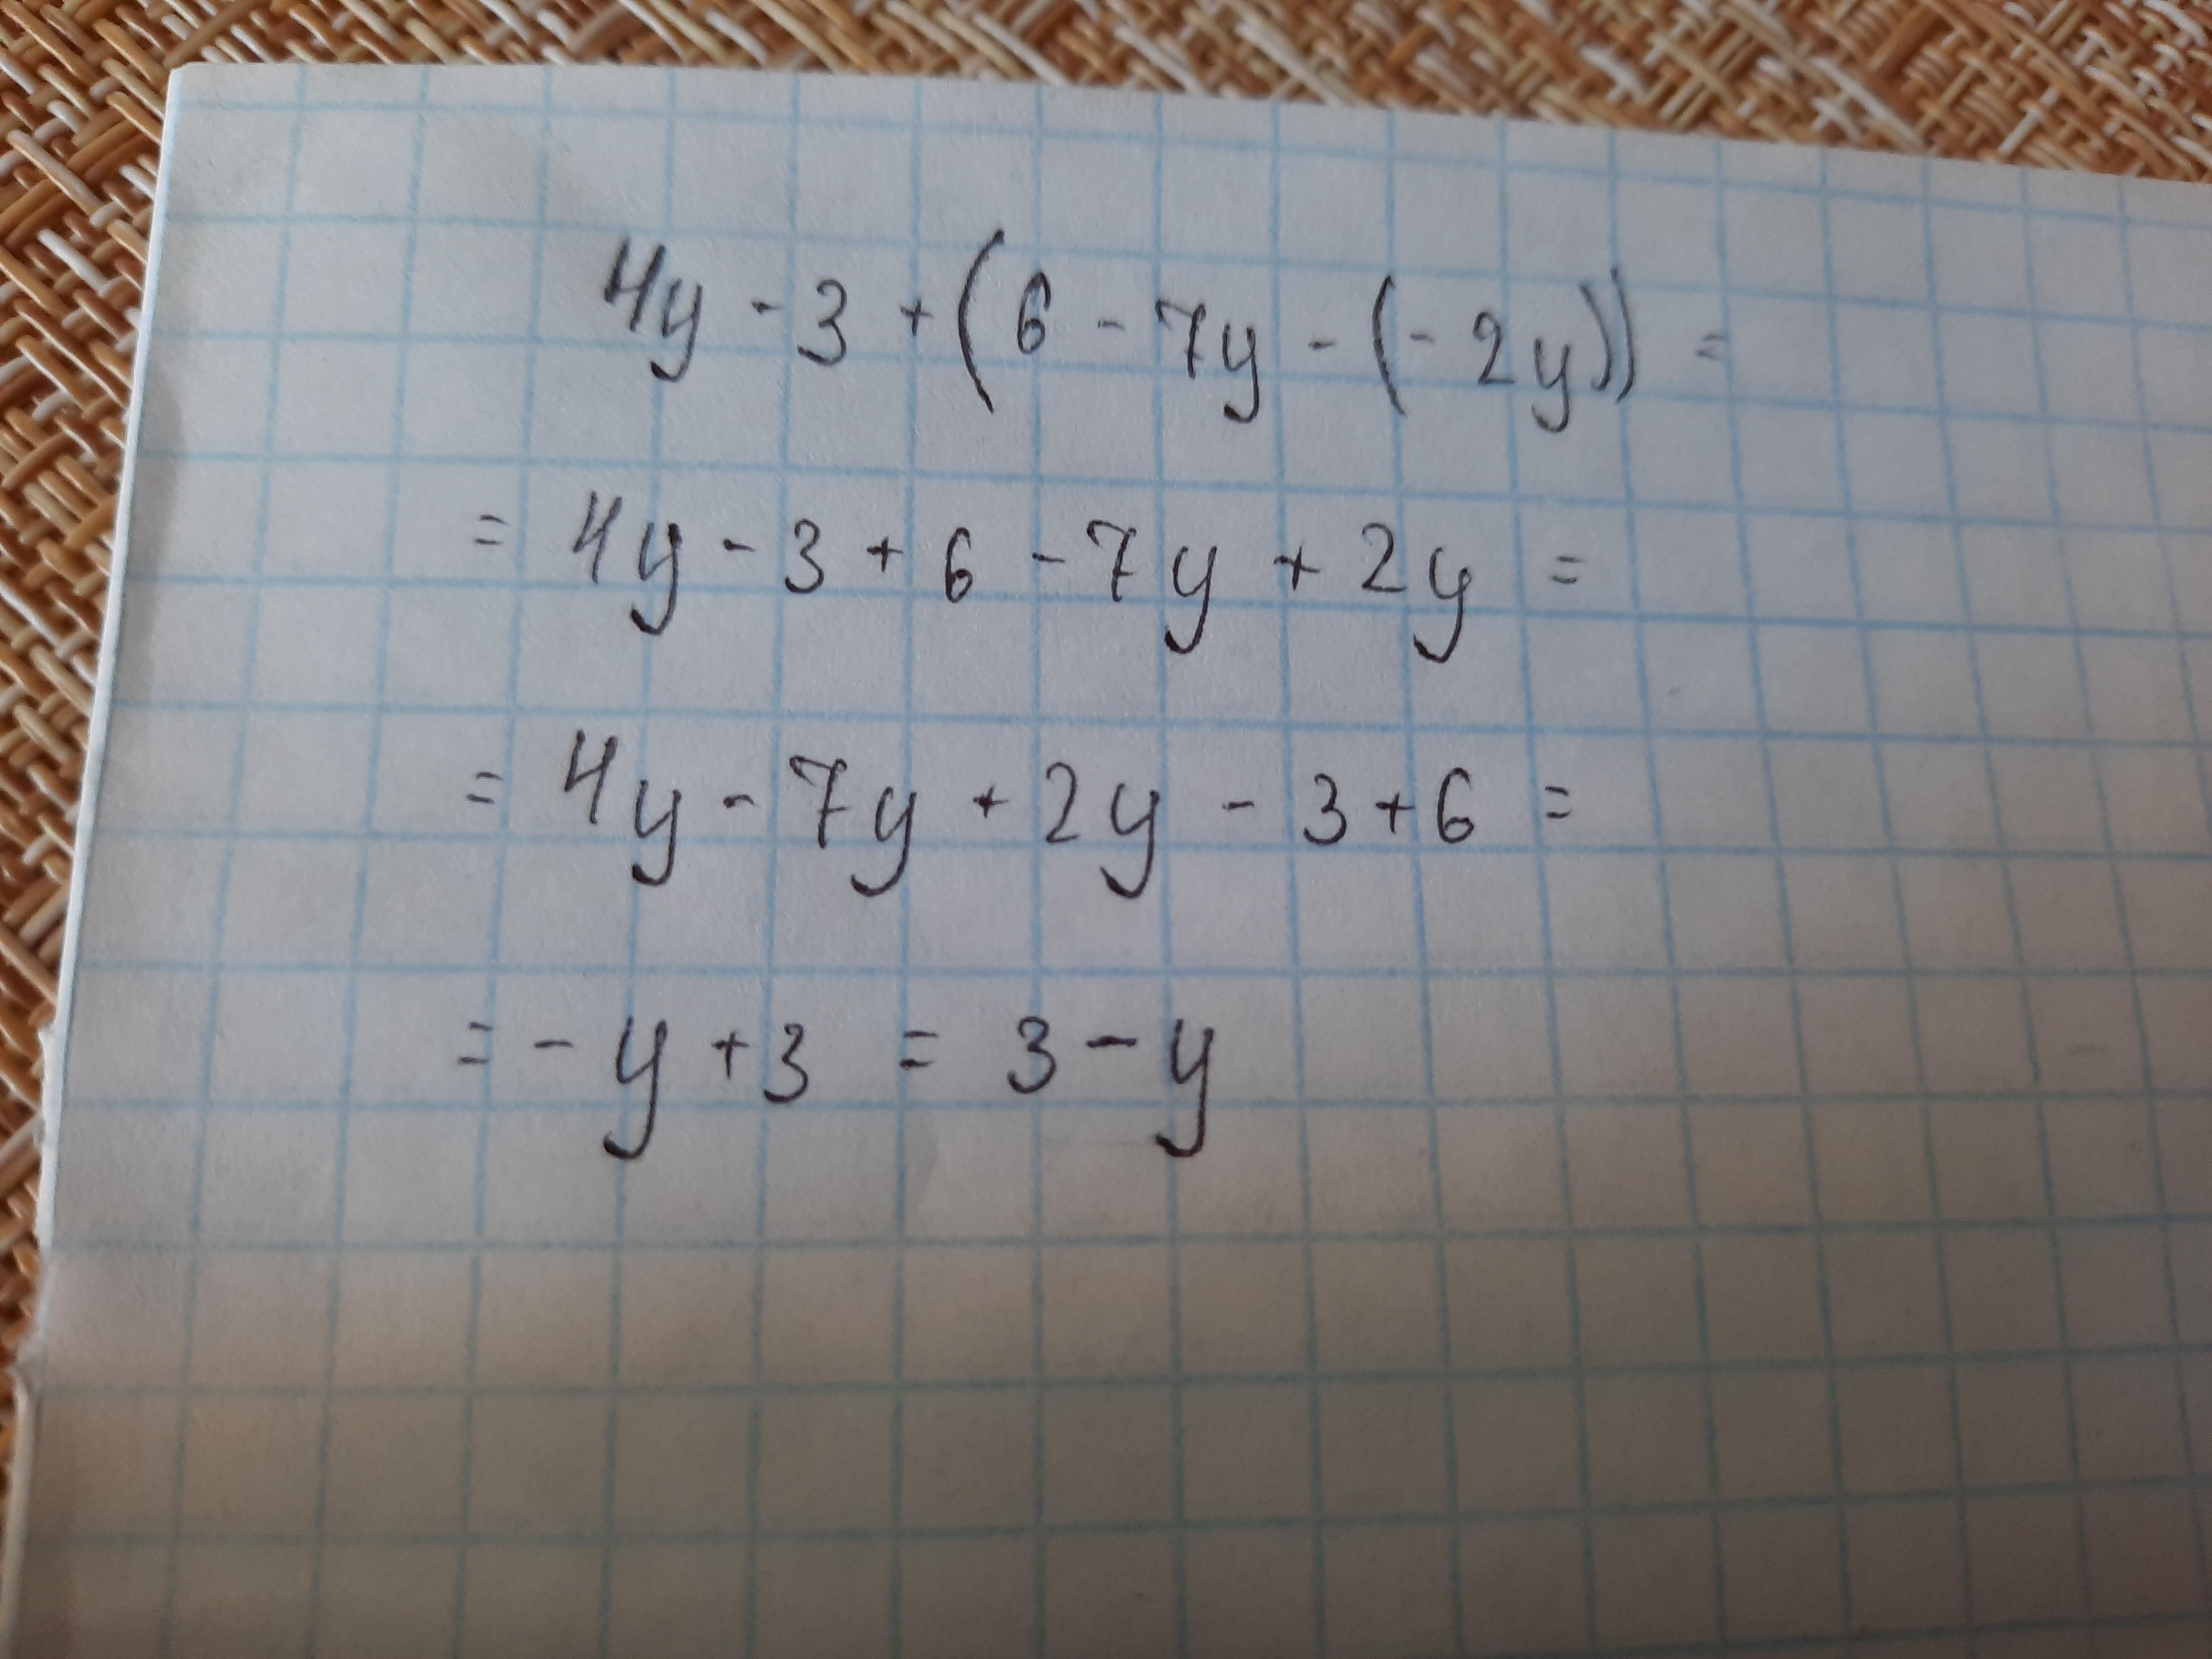 4y - 3 + (6 - 7y - (- 2y)) =
= 4y - 3 + 6 - 7y + 2y =
= 4y - 7y + 2y - 3 + 6 =
= - y + 3 = 3 - y